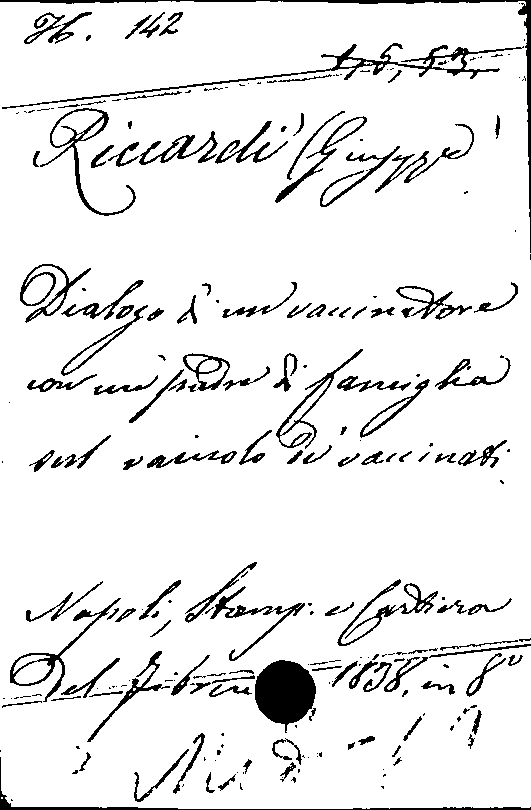 H. 142
1, 5, 53,
Riccardi (Giuseppe)
Dialogo di un vaccinatore
con un padre di famiglia
sul vaiuolo de' vaccinati.
Napoli, Stamp. e Cartiera
Del Fibreno 1838, in 8°